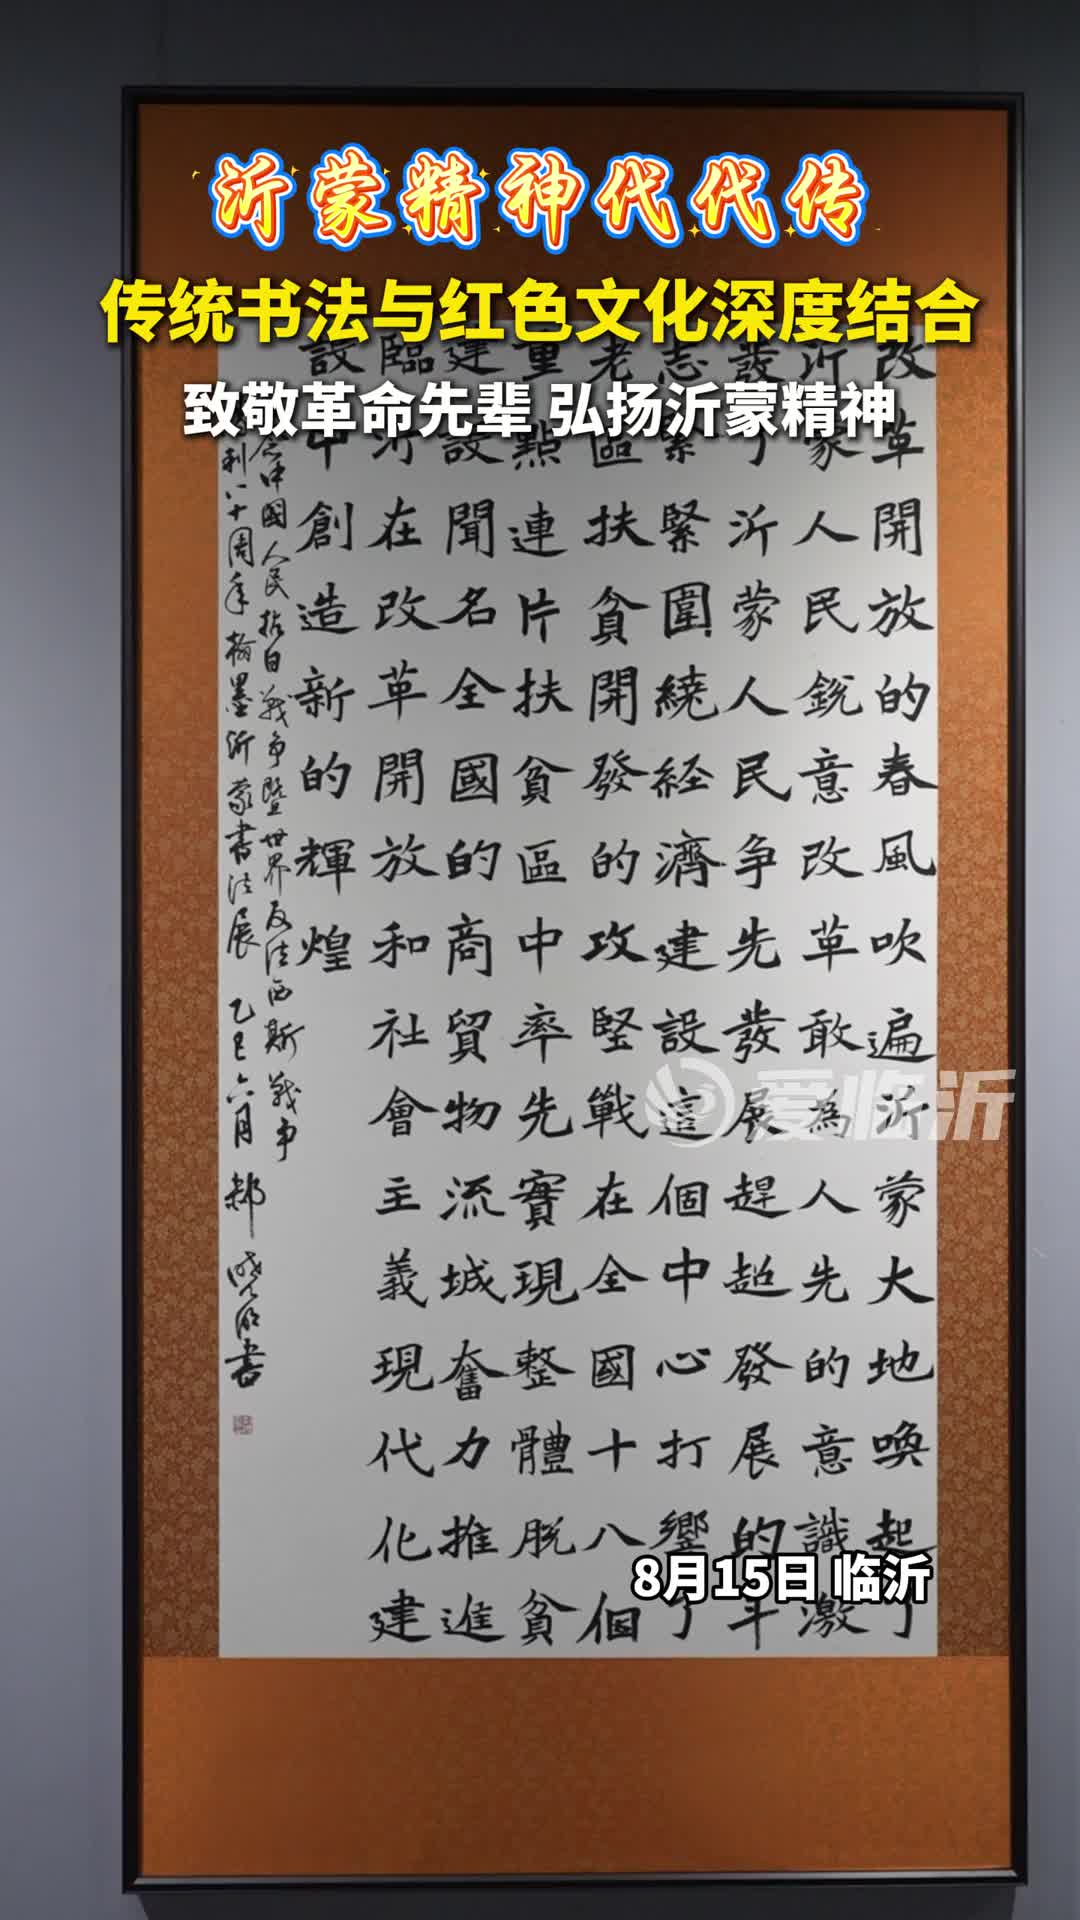 沂蒙精神代代传
传统书法与红色文化深度结合
致敬革命先辈 弘扬沂蒙精神
改革開放的春風吹遍沂蒙大地喚起了
沂蒙人民銳意改革敢為人先的意識激
發了沂蒙人民争先發展趕超發展的斗
志緊緊圍繞経濟建設這個中心打響了
老區扶貧開發的攻堅戰在全國十八個
重點連片扶貧區中率先實現整體脱貧
建設聞名全國的商貿物流城奮力推進
臨沂在改革開放和社會主義現代化建
設中創造新的輝煌
念中國人民抗日戰争暨世界反法西斯戰争
利八十周年翰墨沂蒙書法展 乙巳六月 郝晓明書
爱临沂
8月15日 临沂